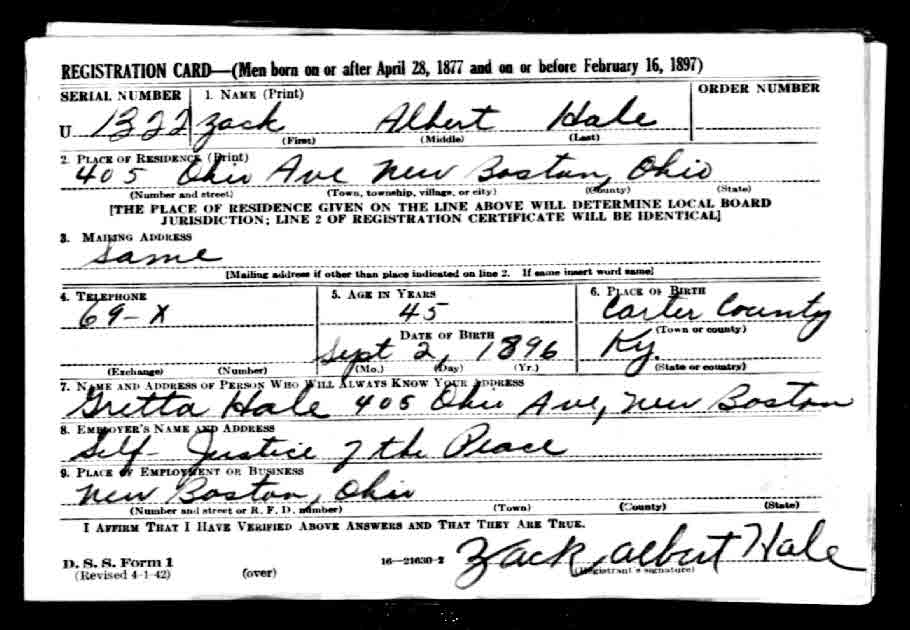 REGISTRATION CARD—(Men born on or after April 28, 1877 and on or before February 16, 1897)
SERIAL NUMBER 1. NAME (Print) ORDER NUMBER
U 1322 Zack Albert Hale
(First) (Middle) (Last)
2. PLACE OF RESIDENCE (Print)
405 Ohio Ave New Boston, Ohio
(Number and street) (Town, township, village, or city) (County) (State)
[THE PLACE OF RESIDENCE GIVEN ON THE LINE ABOVE WILL DETERMINE LOCAL BOARD
JURISDICTION; LINE 2 OF REGISTRATION CERTIFICATE WILL BE IDENTICAL]
3. MAILING ADDRESS
Same
[Mailing address if other than place indicated on line 2. If same insert word same]
4. TELEPHONE 5. AGE IN YEARS 6. PLACE OF BIRTH
69-X 45 Carter County
DATE OF BIRTH (Town or county)
Sept 2, 1896 Ky.
(Exchange) (Number) (Mo.) (Day) (Yr.) (State or country)
7. NAME AND ADDRESS OF PERSON WHO WILL ALWAYS KNOW YOUR ADDRESS
Gretta Hale 405 Ohio Ave, New Boston
8. EMPLOYER'S NAME AND ADDRESS
Self- Justice of the Peace
9. PLACE OF EMPLOYMENT OR BUSINESS
New Boston, Ohio
(Number and street or R. F. D. number) (Town) (County) (State)
I AFFIRM THAT I HAVE VERIFIED ABOVE ANSWERS AND THAT THEY ARE TRUE.
D. S. S. Form 1 16—21630-2 Zack Albert Hale
(Revised 4-1-42) (over) (Registrant's signature)